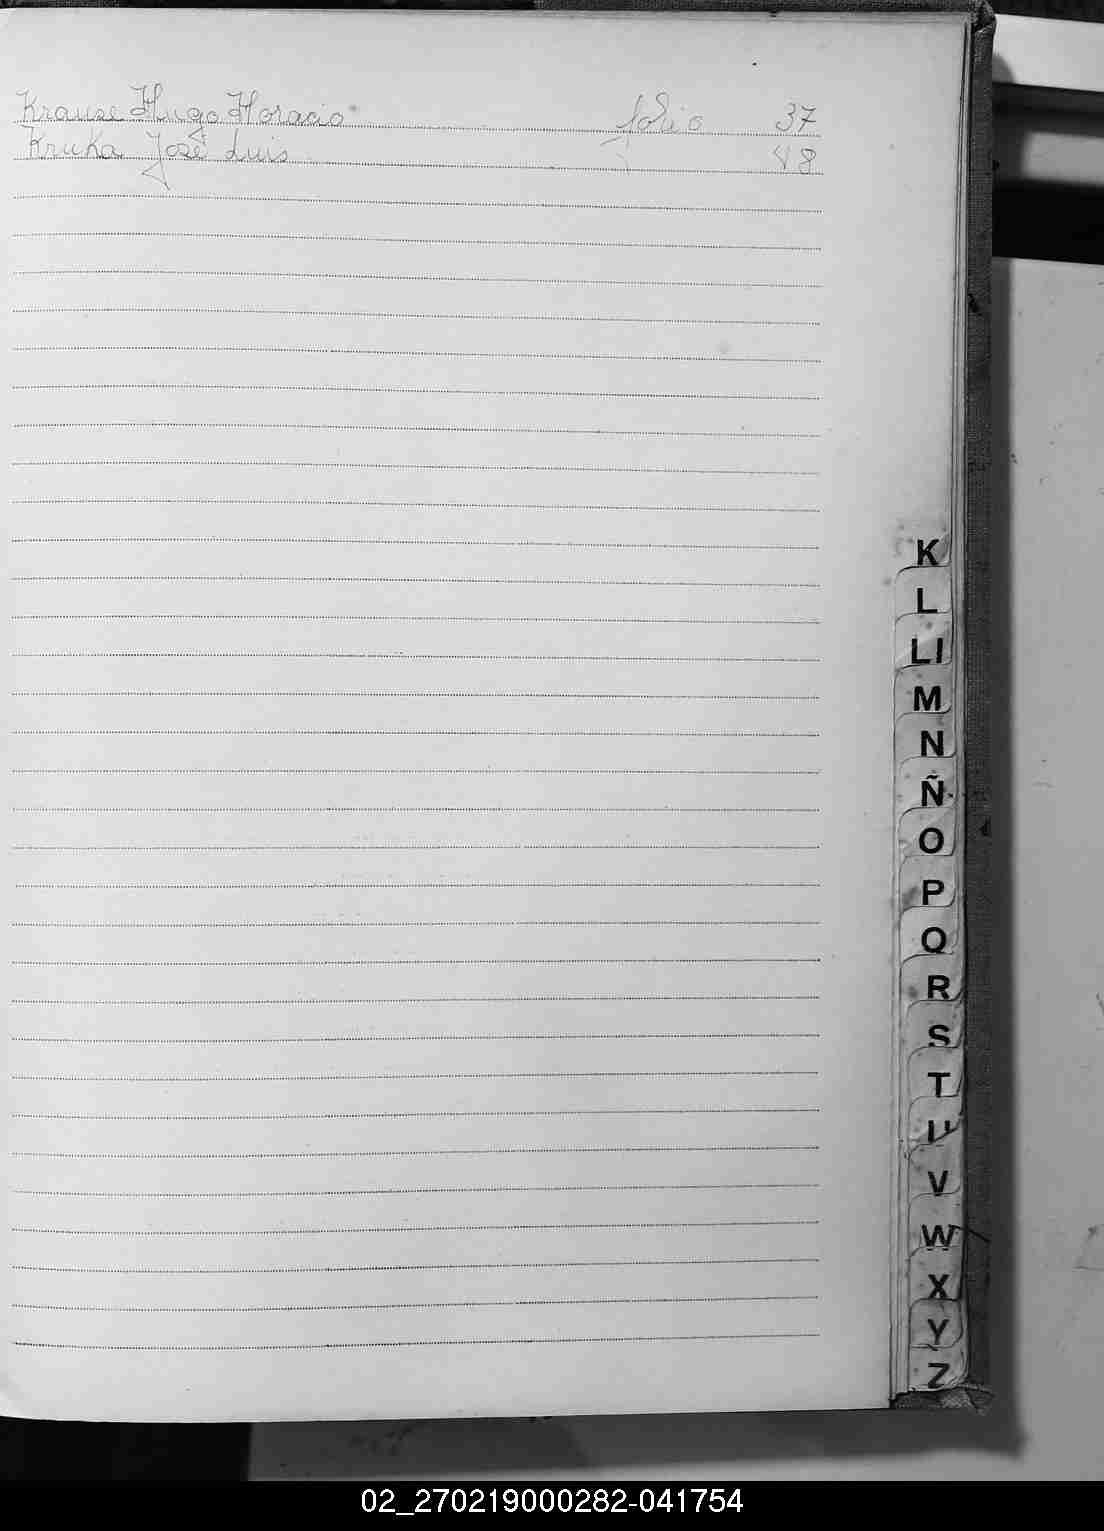 Krause Hugo Horacio folio 37
Kruka José Luis " 48
K
L
Ll
M
N
Ñ
O
P
Q
R
S
T
U
V
W
X
Y
Z
02_270219000282-041754